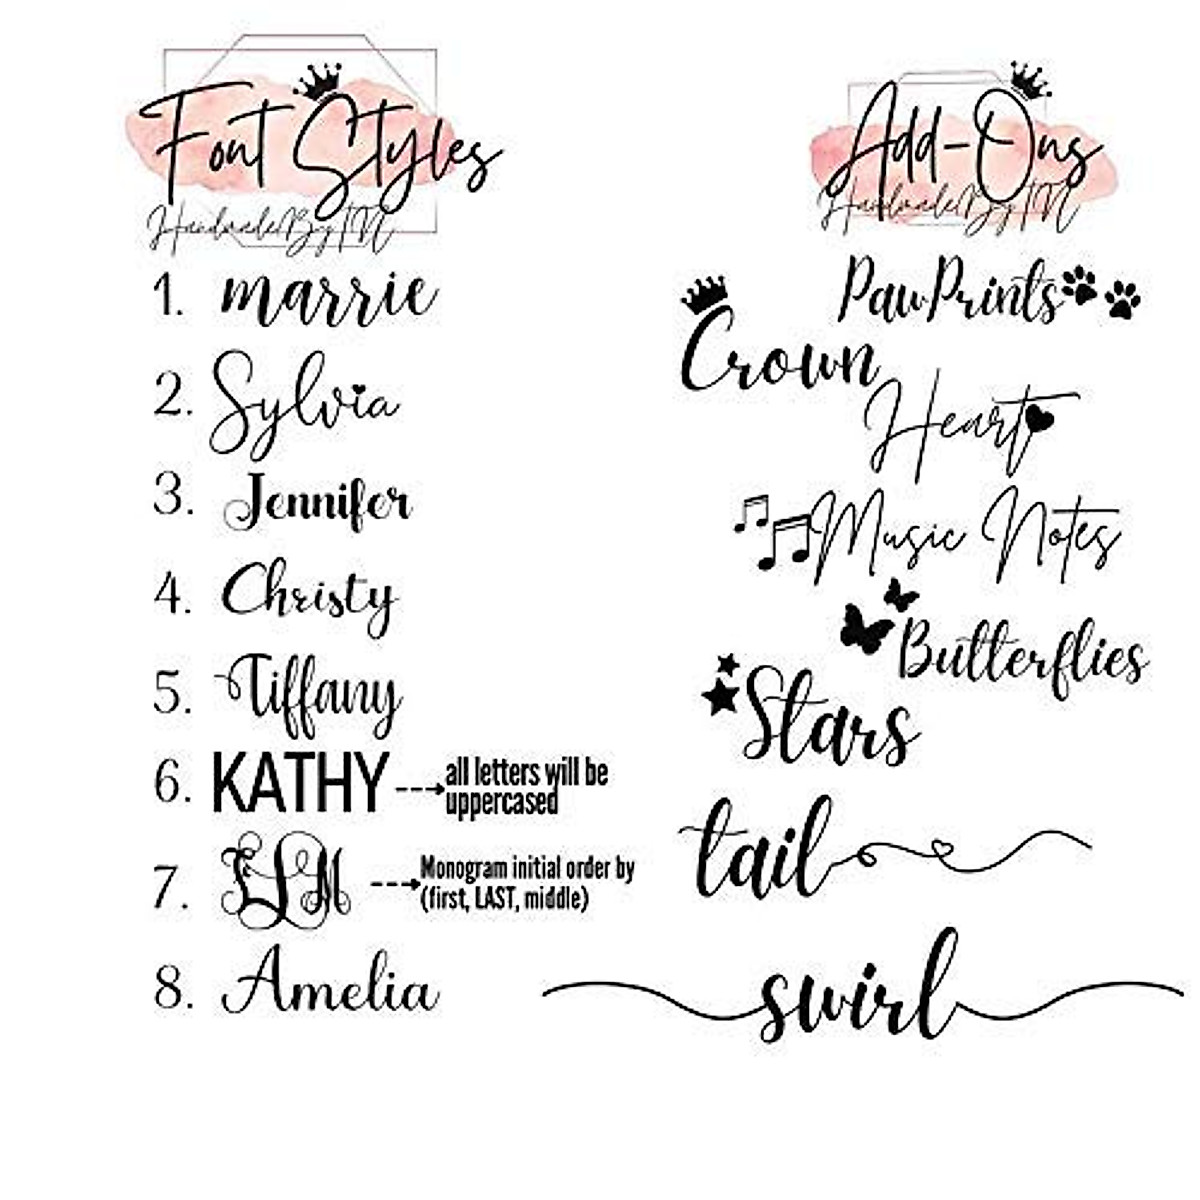 Font Styles
HandmadeByTN
1. marrie
2. Sylvia
3. Jennifer
4. Christy
5. Tiffany
6. KATHY
all letters will be
uppercased
7. ELM
Monogram initial order by
(first, LAST, middle)
8. Amelia
Add-Ons
HandmadeByTN
PawPrints
Crown
Heart
Music Notes
Butterflies
Stars
tail
swirl